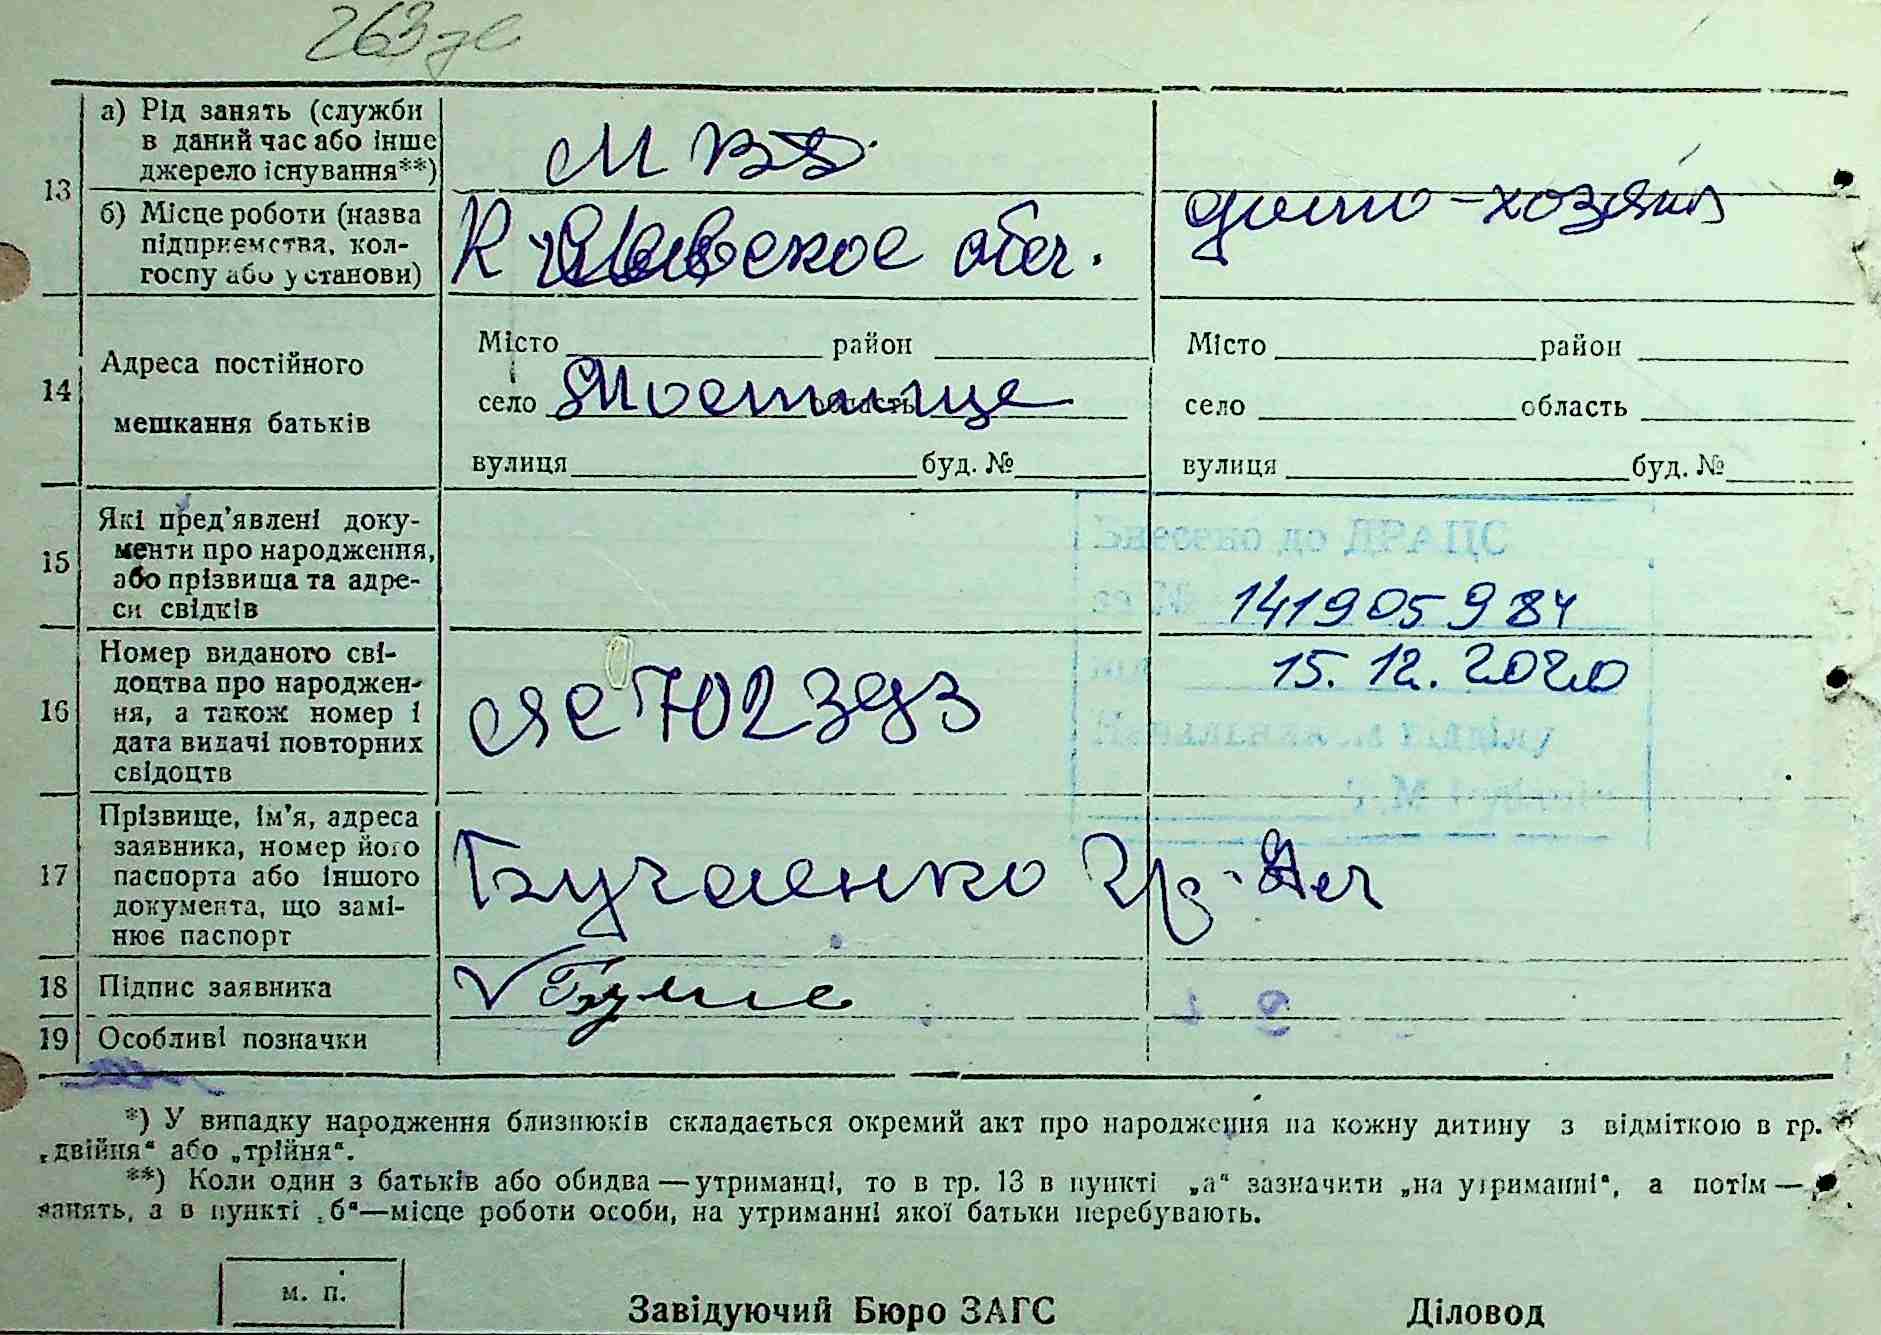 263
а) Рід занять (служби
в даний час або інше
джерело існування**)
МВД
13
б) Місце роботи (назва
підприємства, кол-
госпу або установи)
обл.
домо-хозяйка
14
Адреса постійного
мешкання батьків
Місто район
село Мостище область
вулиця буд. №
Місто район
село область
вулиця буд. №
15
Які пред'явлені доку-
менти про народження,
або прізвища та адре-
си свідків
Внесено до ДРАЦС
за № 141905984
15.12.2020
16
Номер виданого сві-
доцтва про народжен-
ня, а також номер і
дата видачі повторних
свідоцтв
702393
17
Прізвище, ім'я, адреса
заявника, номер його
паспорта або іншого
документа, що замі-
нює паспорт
18 Підпис заявника
19 Особливі позначки
*) У випадку народження близнюків складається окремий акт про народження на кожну дитину з відміткою в гр.
„двійня“ або „трійня“.
**) Коли один з батьків або обидва—утриманці, то в гр. 13 в пункті „а“ зазначити „на утриманні“, а потім —
занять, а в пункті „б“—місце роботи особи, на утриманні якої батьки перебувають.
м. п.
Завідуючий Бюро ЗАГС Діловод